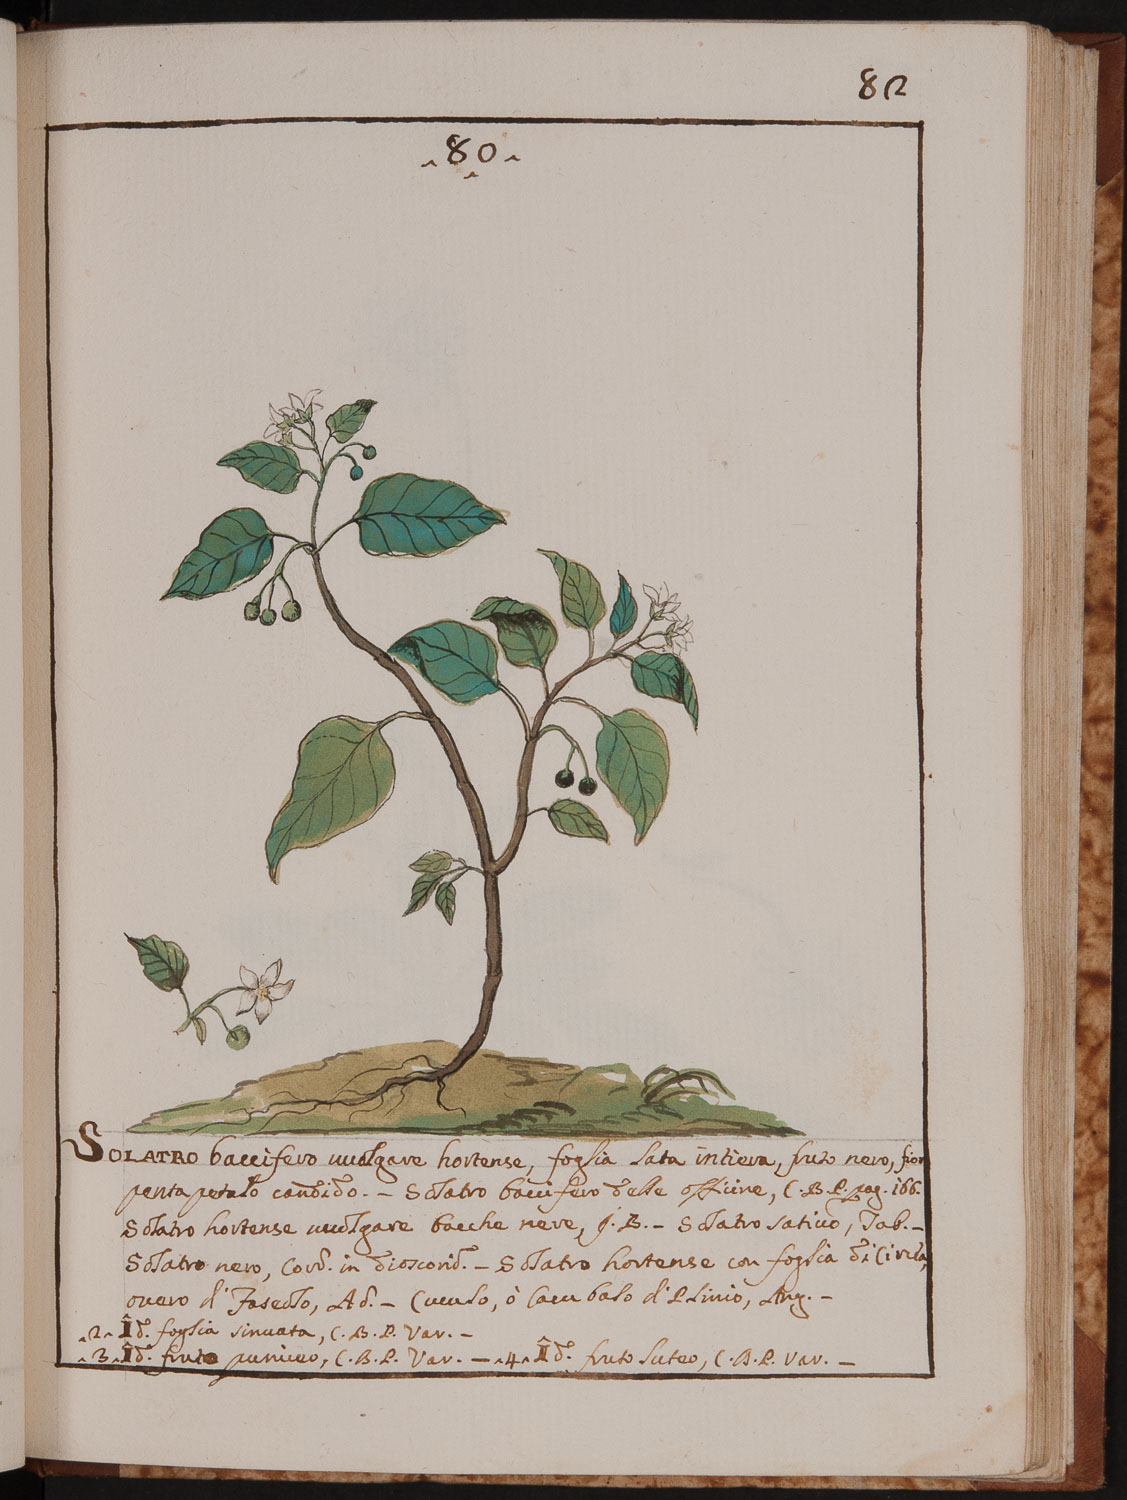 82
80
SOLATRO baccifero uuolgare hortense, foglia lata intiera, fruto nero, fior
pentapetalo candido. – Solatro baccifero delle officine, C.B.P. pag. 166.
Solatro hortense uuolgare bacche nere, J.B. – Solatro satiuo, Tab. –
Solatro nero, Cord. in dioscorid. – Solatro hortense con foglia di Circea,
ouero di Faseolo, Ad. – Cuculo, ò Cacubalo di Plinio, Ang. –
2 Îd. foglia sinuata, C.B.P. Var. –
3 Îd. fruto puniceo, C.B.P. Var. – 4 Îd. fruto luteo, C.B.P. Var. –